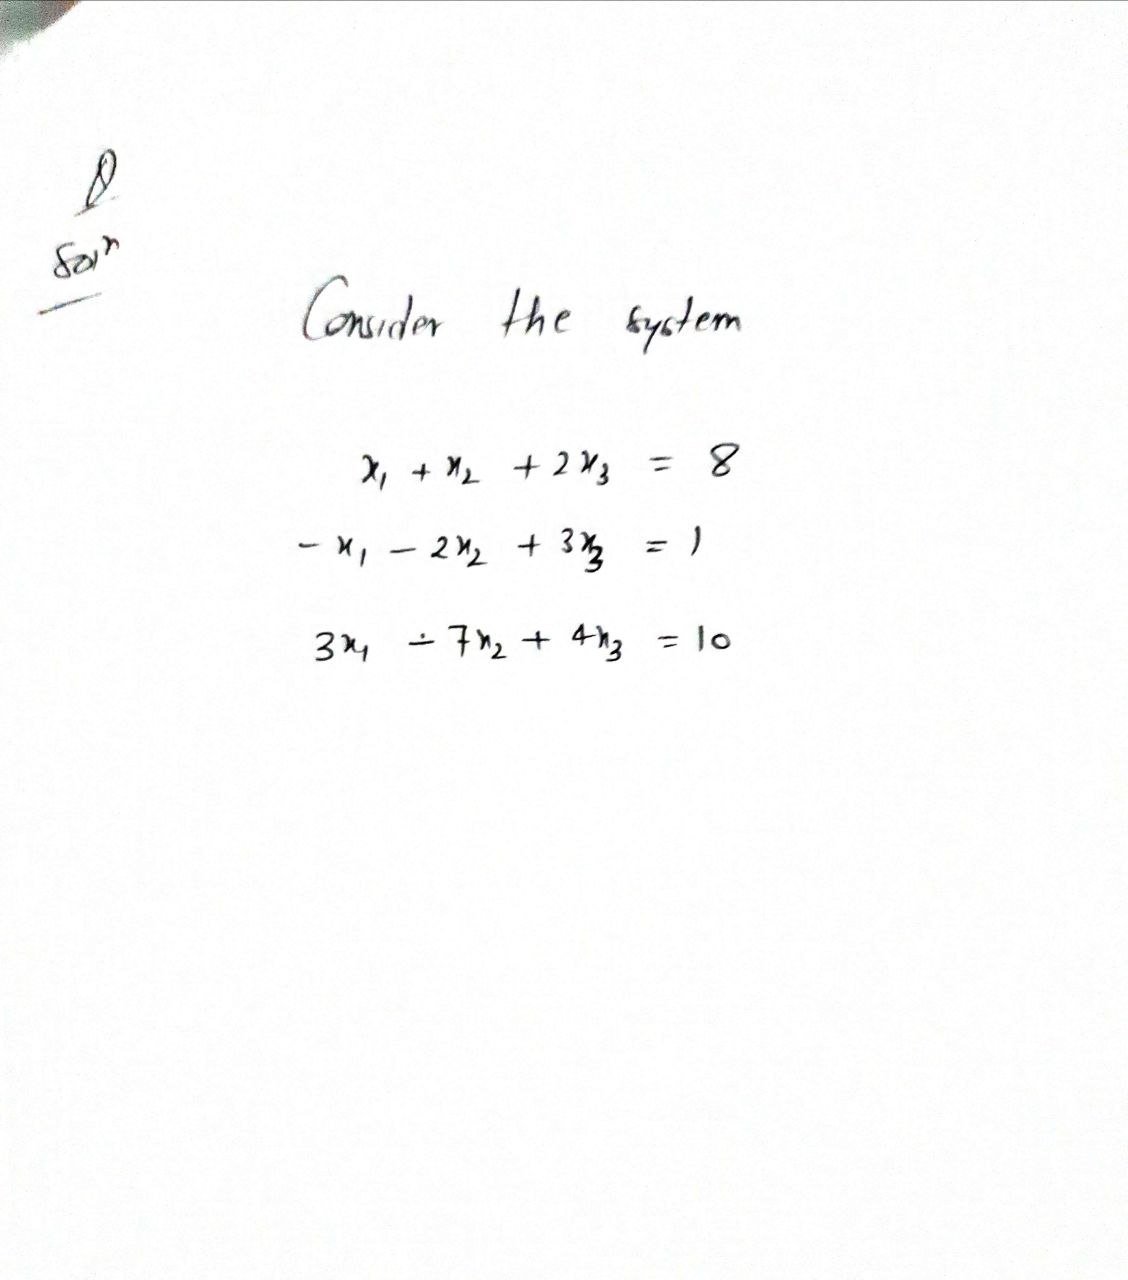 Q
Soln
Consider the system
x₁ + x₂ + 2x₃ = 8
- x₁ - 2x₂ + 3x₃ = 1
3x₁ - 7x₂ + 4x₃ = 10